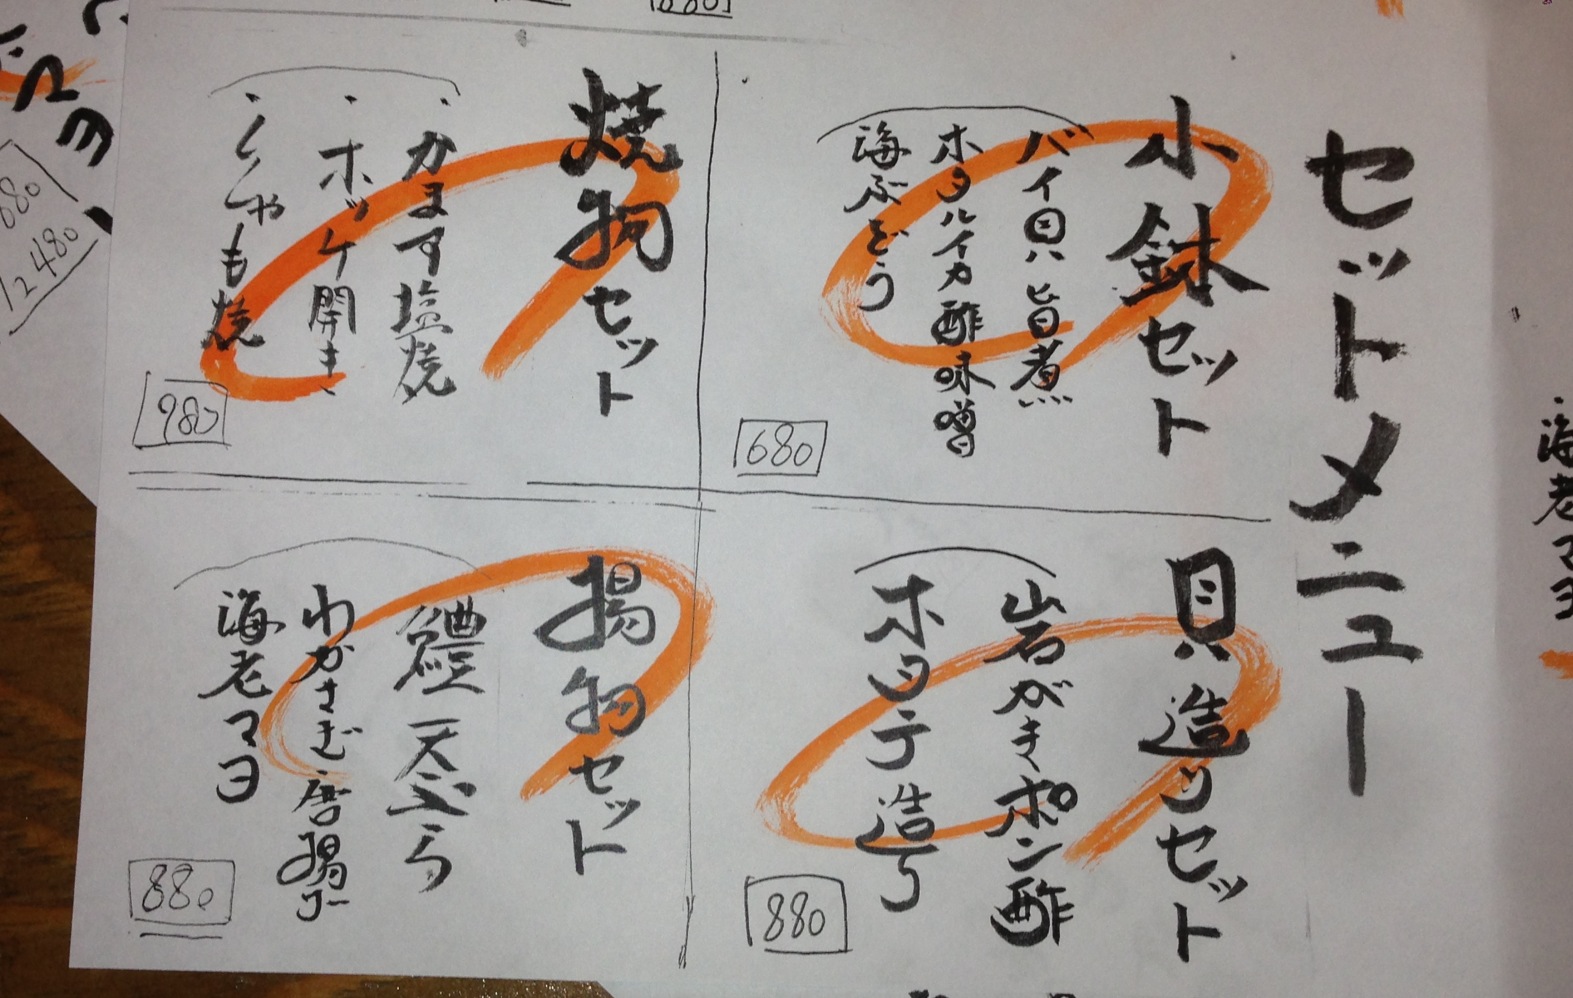 海老マヨ
セットメニュー
小鉢セット
バイ貝旨煮
ホタルイカ酢味噌
海ぶどう
680
貝造りセット
岩がきポン酢
ホタテ造り
880
焼物セット
・かます塩焼
・ホッケ開き
・ししゃも焼
980
揚物セット
鱧天ぷら
わかさぎ唐揚げ
海老マヨ
880
880
680
2480